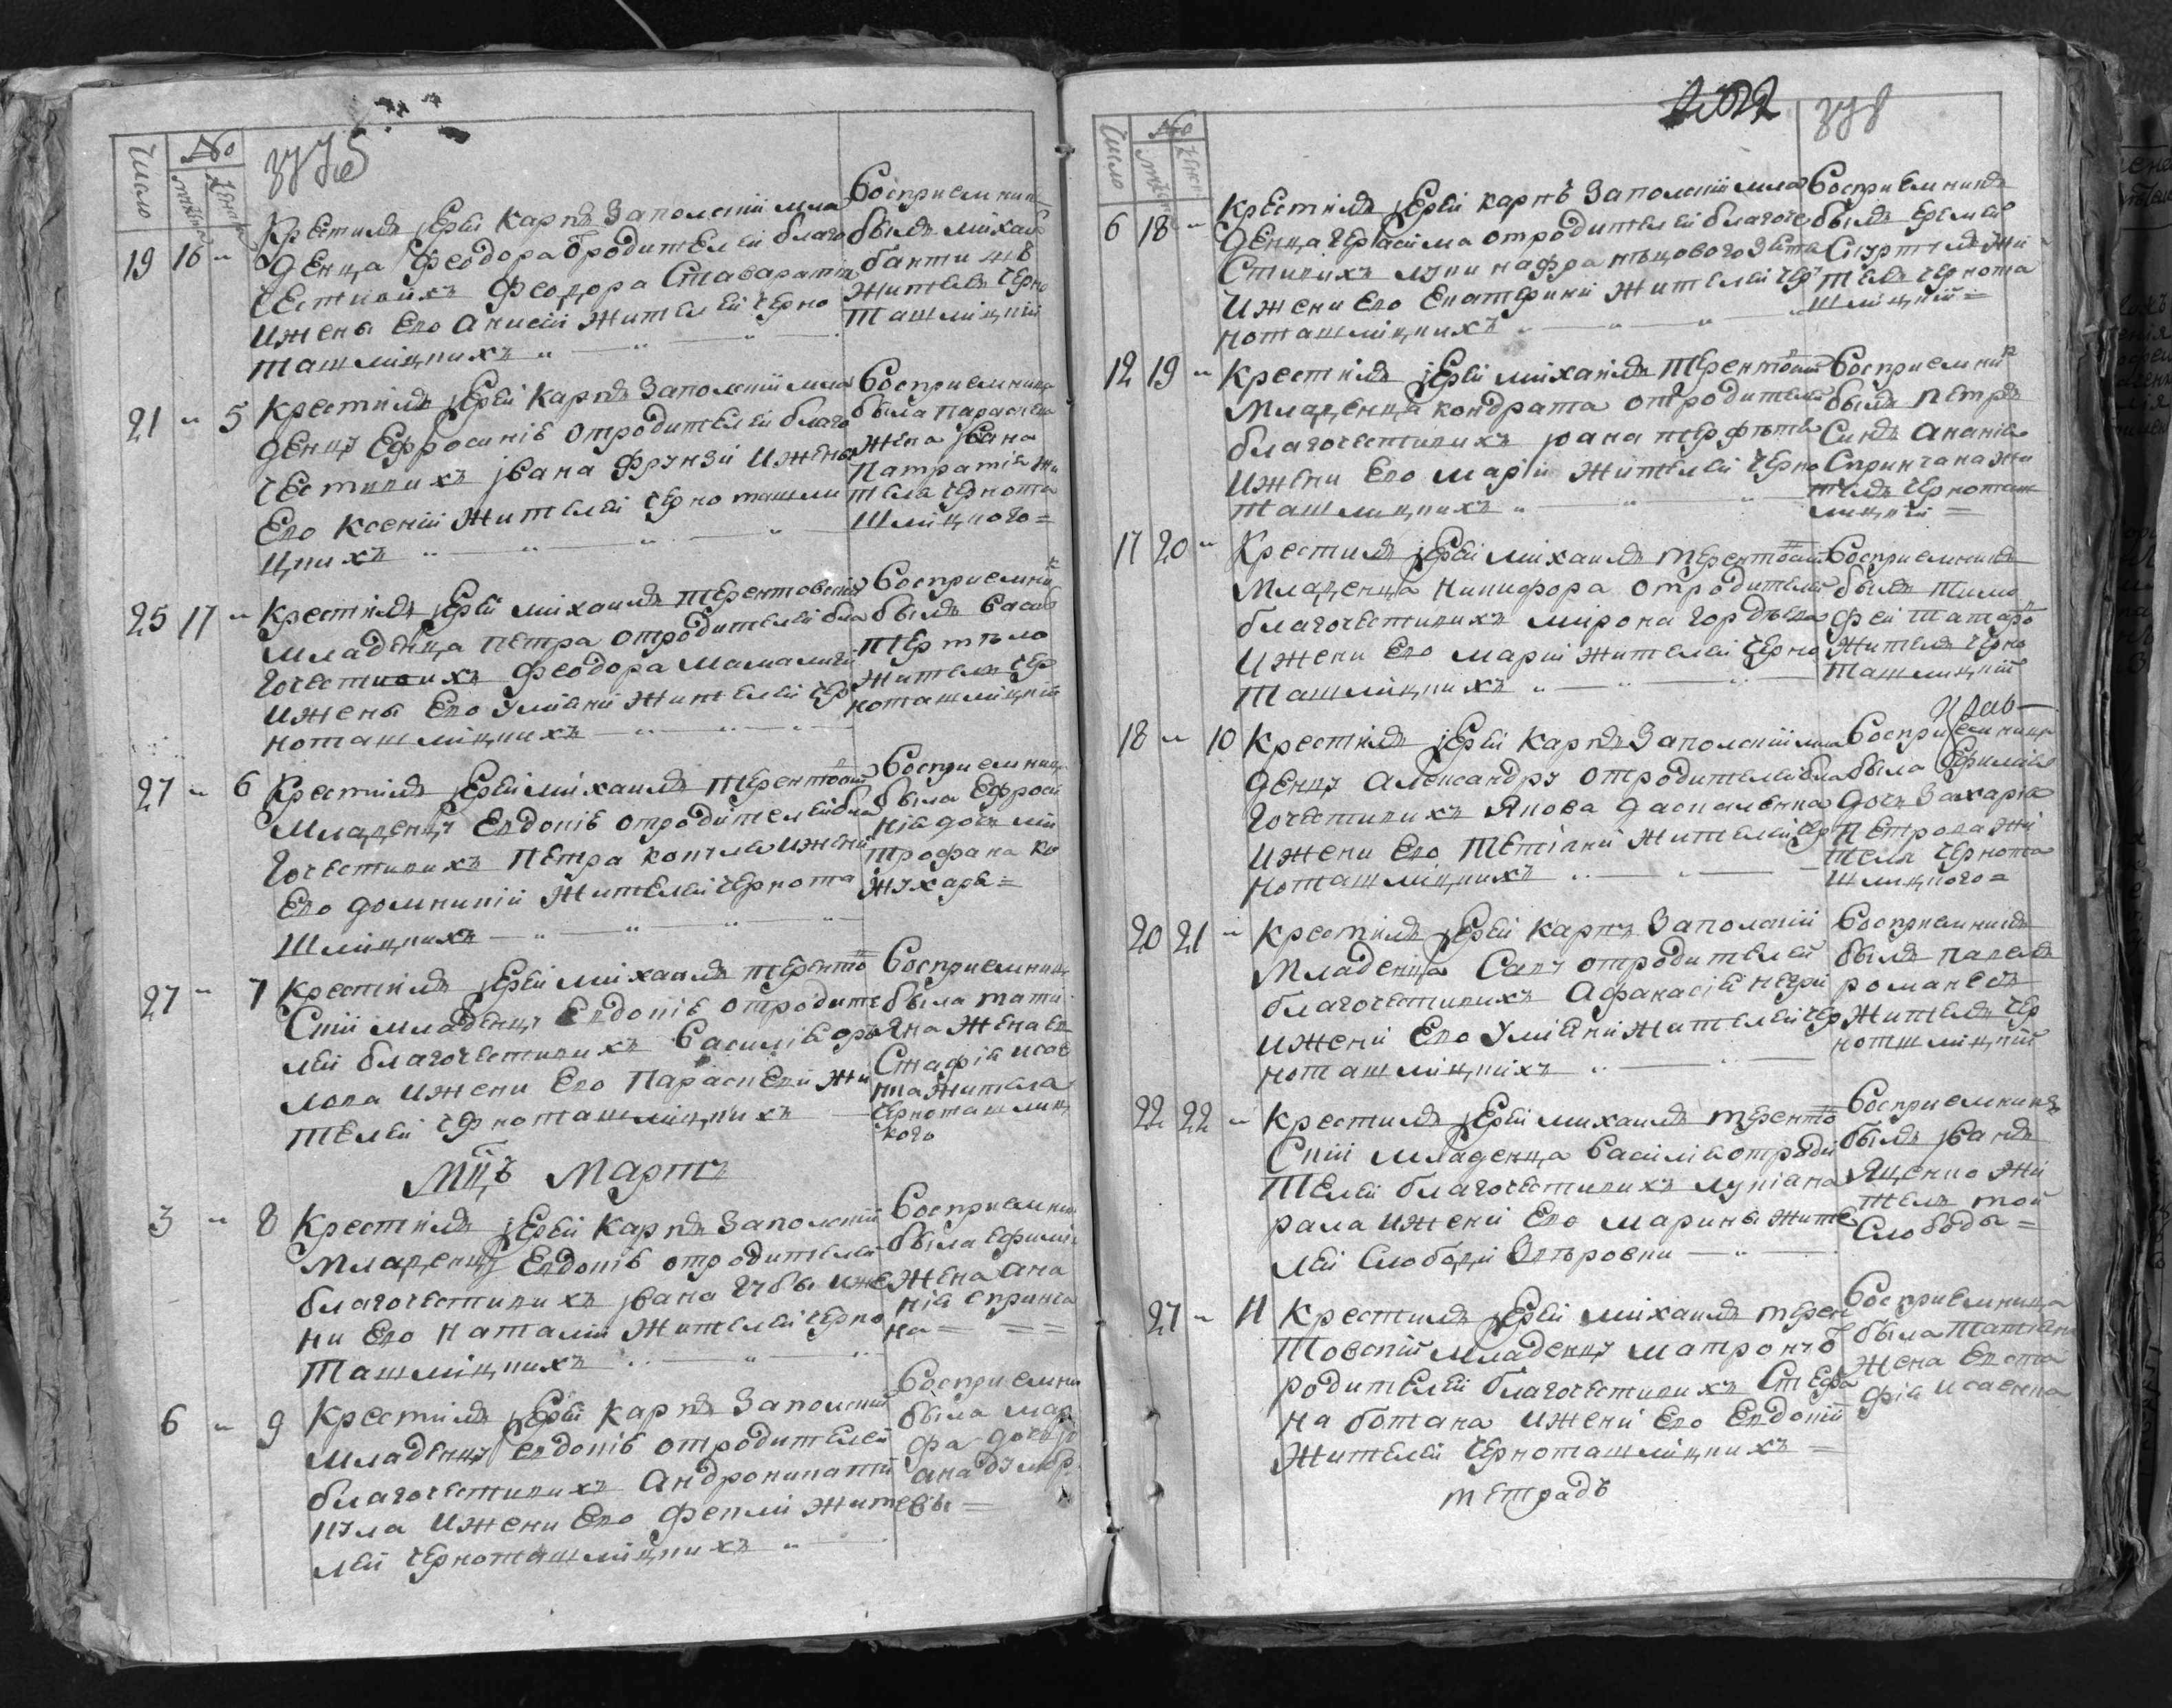 Число
№
мужеска
женска
19 16 „ Крестилъ іерей Карпъ Заполскій мла
денца Феодора отродителей благо
честивихъ Феодора Ставарати
ижены Его Анисіи жителей черно
ташлицкихъ „ — „ — „
Восприемник
былъ михаи
житель черно
ташлицкій
21 „ 5 Крестилъ іерей Карпъ Заполскій мла
денцу Ефросинію отродителей благо
честивихъ јвана Фрунзи ижены
Его Ксеніи жителей черноташли
цкихъ „ — „ — „
Восприемница
была параскева
жена јвана
Патратія жи
теля чернота
шлицкого =
25 17 „ Крестилъ іерей михаилъ терентовскій
младенца петра отродителей бла
гочестивихъ Феодора мамалиги
ижены Его Уліани жителей чер
ноташлицкихъ „ — „ —
Восприемник
былъ Васил
житель чер
ноташлицкій
27 „ 6 Крестилъ іерей михаилъ терентов
младенцу Евдокію отродителей бла
гочестивихъ петра ижени
Его домникіи жителей чернота
шлицкихъ — „ — „ — „
Восприемниц
была Ефроси
нія дочь ми
трофана ко
жухаря =
27 „ 7 Крестилъ іерей михаилъ теренто
Скій младенцу Евдокію отродите
лей благочестивихъ Василія ор
лова ижени Его Параскевіи жи
телей черноташлицкихъ —
Восприемниц
была тати
яна жена ев
Стафія исає
нка жителя
черноташлиц
кого
Мцъ Мартъ
3 „ 8 Крестилъ іерей Карпъ Заполскій
младенцу Евдокію отродителей
благочестивихъ јвана Губы иже
ни Его Наталіи жителей черно
ташлицкихъ „ — „ — „
Восприемни
была ефимі
жена ана
нія спринча
на = = =
6 „ 9 Крестилъ іерей Карпъ Заполскій
младенцу евдокію отродителей
благочестивихъ Андроника
ижени Его Феклы жите
лей черноташлицкихъ „ —
Восприемни
была мар
фа дочь јо
2022
378
Число
№
6 18 „ Крестилъ іерей карпъ Заполскій мла
денца герасима отродителей благоче
Стивихъ
ижени Его Екатерини жителей чер
ноташлицкихъ „ — „ — „
Восприемникъ
былъ еремей
жи
тель чернота
шлицкій =
12 19 „ Крестилъ іерей михаилъ терентов
младенца кондрата отродителей
благочестивихъ јоана
ижени Его маріи жителей черно
ташлицкихъ „ — „ — „
Восприемник
былъ петръ
Синъ Ананія
Спринчана жи
тель черноташ
лицкій =
17 20 „ Крестилъ іерей михаилъ терентов
младенца Никифора отродителей
благочестивихъ мирона гордѣева
ижени Его маріи жителей черно
ташлицкихъ „ — „ — „ —
Восприемникъ
былъ тимо
фей
житель черно
ташлицкій
18 „ 10 Крестилъ іерей Карпъ Заполскій мла
денцу Александру отродителей бла
гочестивихъ Якова
ижени Его Тетіани жителей чер
ноташлицкихъ „ — „ —
Восприемница
была Ефимія
дочь Захарія
Петрова жи
теля чернота
шлицкого =
20 21 „ Крестилъ іерей Карпъ Заполскій
младенца Саву отродителей
благочестивихъ Афанасія
ижени Его Уліани жителей чер
ноташлицкихъ „ — „ —
Восприемникъ
былъ павелъ
житель чер
нотшлицкій
22 22 „ Крестилъ іерей михаилъ теренто
Скій младенца Василія отроди
телей благочестивихъ лукіана
рала ижени Его марины жите
лей Слободи — „ —
Восприемникъ
былъ јванъ
Яценко жи
тель той
Слободы =
27 „ 11 Крестилъ іерей михаилъ терен
товскій младенцу матрону о
родителей благочестивихъ Стефа
на ботана ижени Его Евдокіи
жителей черноташлицкихъ =
Восприемница
была татіана
жена Евста
фія исаенка
тетрадъ